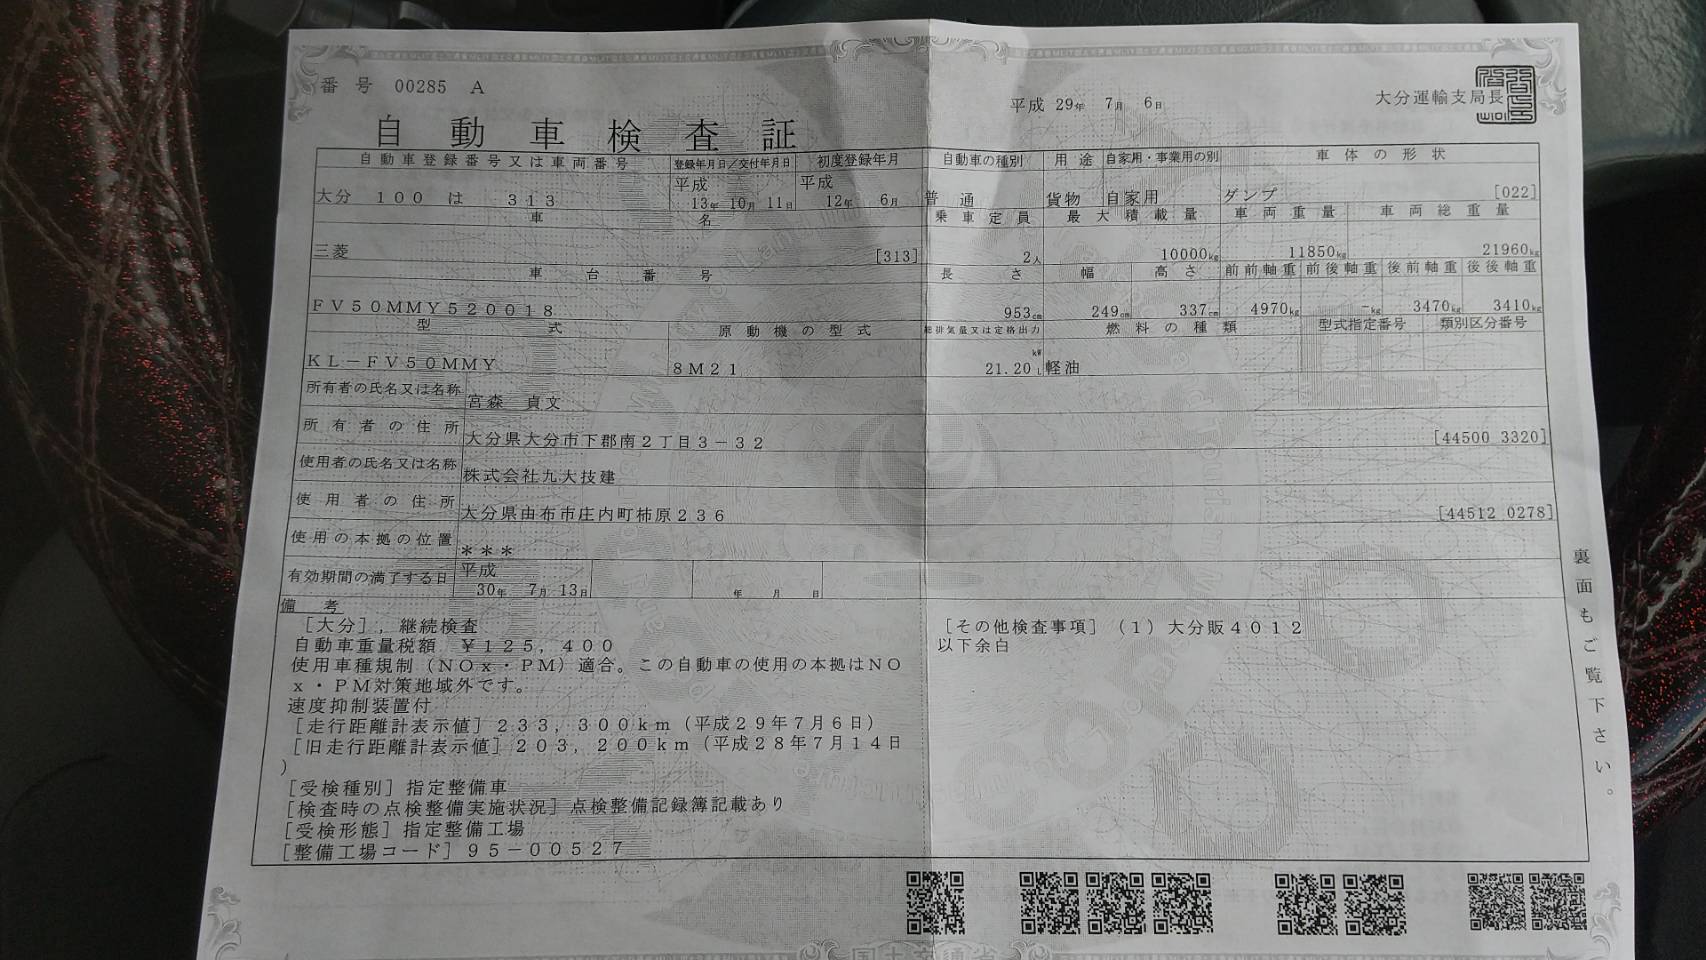 番号 00285 A
平成 29年 7月 6日
大分運輸支局長
自動車検査証
自動車登録番号又は車両番号 登録年月日/交付年月日 初度登録年月 自動車の種別 用途 自家用・事業用の別 車体の形状
大分 100 は 313 平成 13年 10月 11日 平成 12年 6月 普通 貨物 自家用 ダンプ [022]
車名 乗車定員 最大積載量 車両重量 車両総重量
三菱 [313] 2人 10000kg 11850kg 21960kg
車台番号 長さ 幅 高さ 前前軸重 前後軸重 後前軸重 後後軸重
FV50MMY520018 953cm 249cm 337cm 4970kg -kg 3470kg 3410kg
型式 原動機の型式 総排気量又は定格出力 燃料の種類 型式指定番号 類別区分番号
KL-FV50MMY 8M21 21.20 kW L 軽油
所有者の氏名又は名称 宮森 貞文
所有者の住所 大分県大分市下郡南2丁目3-32 [44500 3320]
使用者の氏名又は名称 株式会社九大技建
使用者の住所 大分県由布市庄内町柿原236 [44512 0278]
使用の本拠の位置 ***
有効期間の満了する日 平成 30年 7月 13日 年 月 日
備考
[大分],継続検査
自動車重量税額 ¥125,400
使用車種規制(NOx・PM)適合。この自動車の使用の本拠はNO
x・PM対策地域外です。
速度抑制装置付
[走行距離計表示値]233,300km(平成29年7月6日)
[旧走行距離計表示値]203,200km(平成28年7月14日
)
[受検種別]指定整備車
[検査時の点検整備実施状況]点検整備記録簿記載あり
[受検形態]指定整備工場
[整備工場コード]95-00527
[その他検査事項](1)大分販4012
以下余白
裏面もご覧下さい。
国土交通省